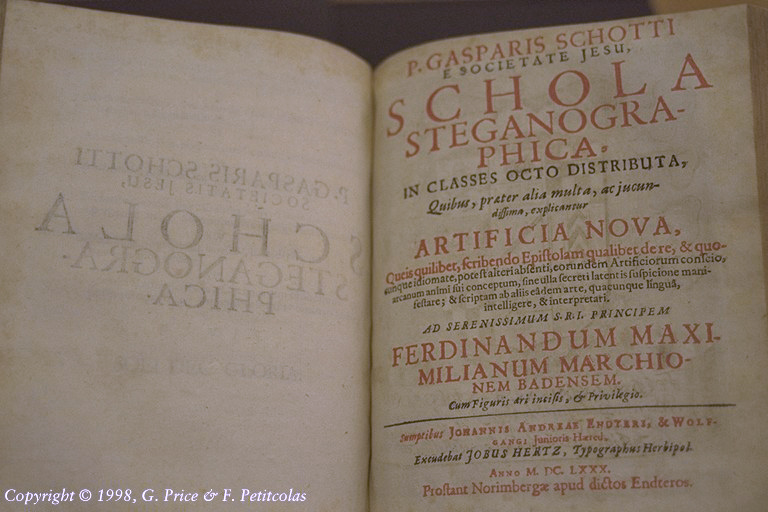 P. GASPARIS SCHOTTI
SOCIETATIS JESU,
SCHOLA
STEGANOGRA-
PHICA.
P. GASPARIS SCHOTTI
E SOCIETATE JESU,
SCHOLA
STEGANOGRA-
PHICA,
IN CLASSES OCTO DISTRIBUTA,
Quibus, præter alia multa, ac jucun-
dissima, explicantur
ARTIFICIA NOVA,
Queis quilibet, scribendo Epistolam qualibet de re, & quo-
cunque idiomate, potest alteri absenti, eorundem Artificiorum conscio,
arcanum animi sui conceptum, sine ulla secreti latentis suspicione mani-
festare; & scriptam ab aliis eâdem arte, quacunque linguâ,
intelligere, & interpretari.
AD SERENISSIMUM S.R.I. PRINCIPEM
FERDINANDUM MAXI-
MILIANUM MARCHIO-
NEM BADENSEM.
Cum Figuris æri incisis, & Privilegio.
Sumptibus JOHANNIS ANDREÆ ENDTERI, & WOLF-
GANGI Junioris Hæred.
Excudebat JOBUS HERTZ, Typographus Herbipol.
ANNO M. DC. LXXX.
Prostant Norimbergæ apud dictos Endteros.
Copyright © 1998, G. Price & F. Petitcolas